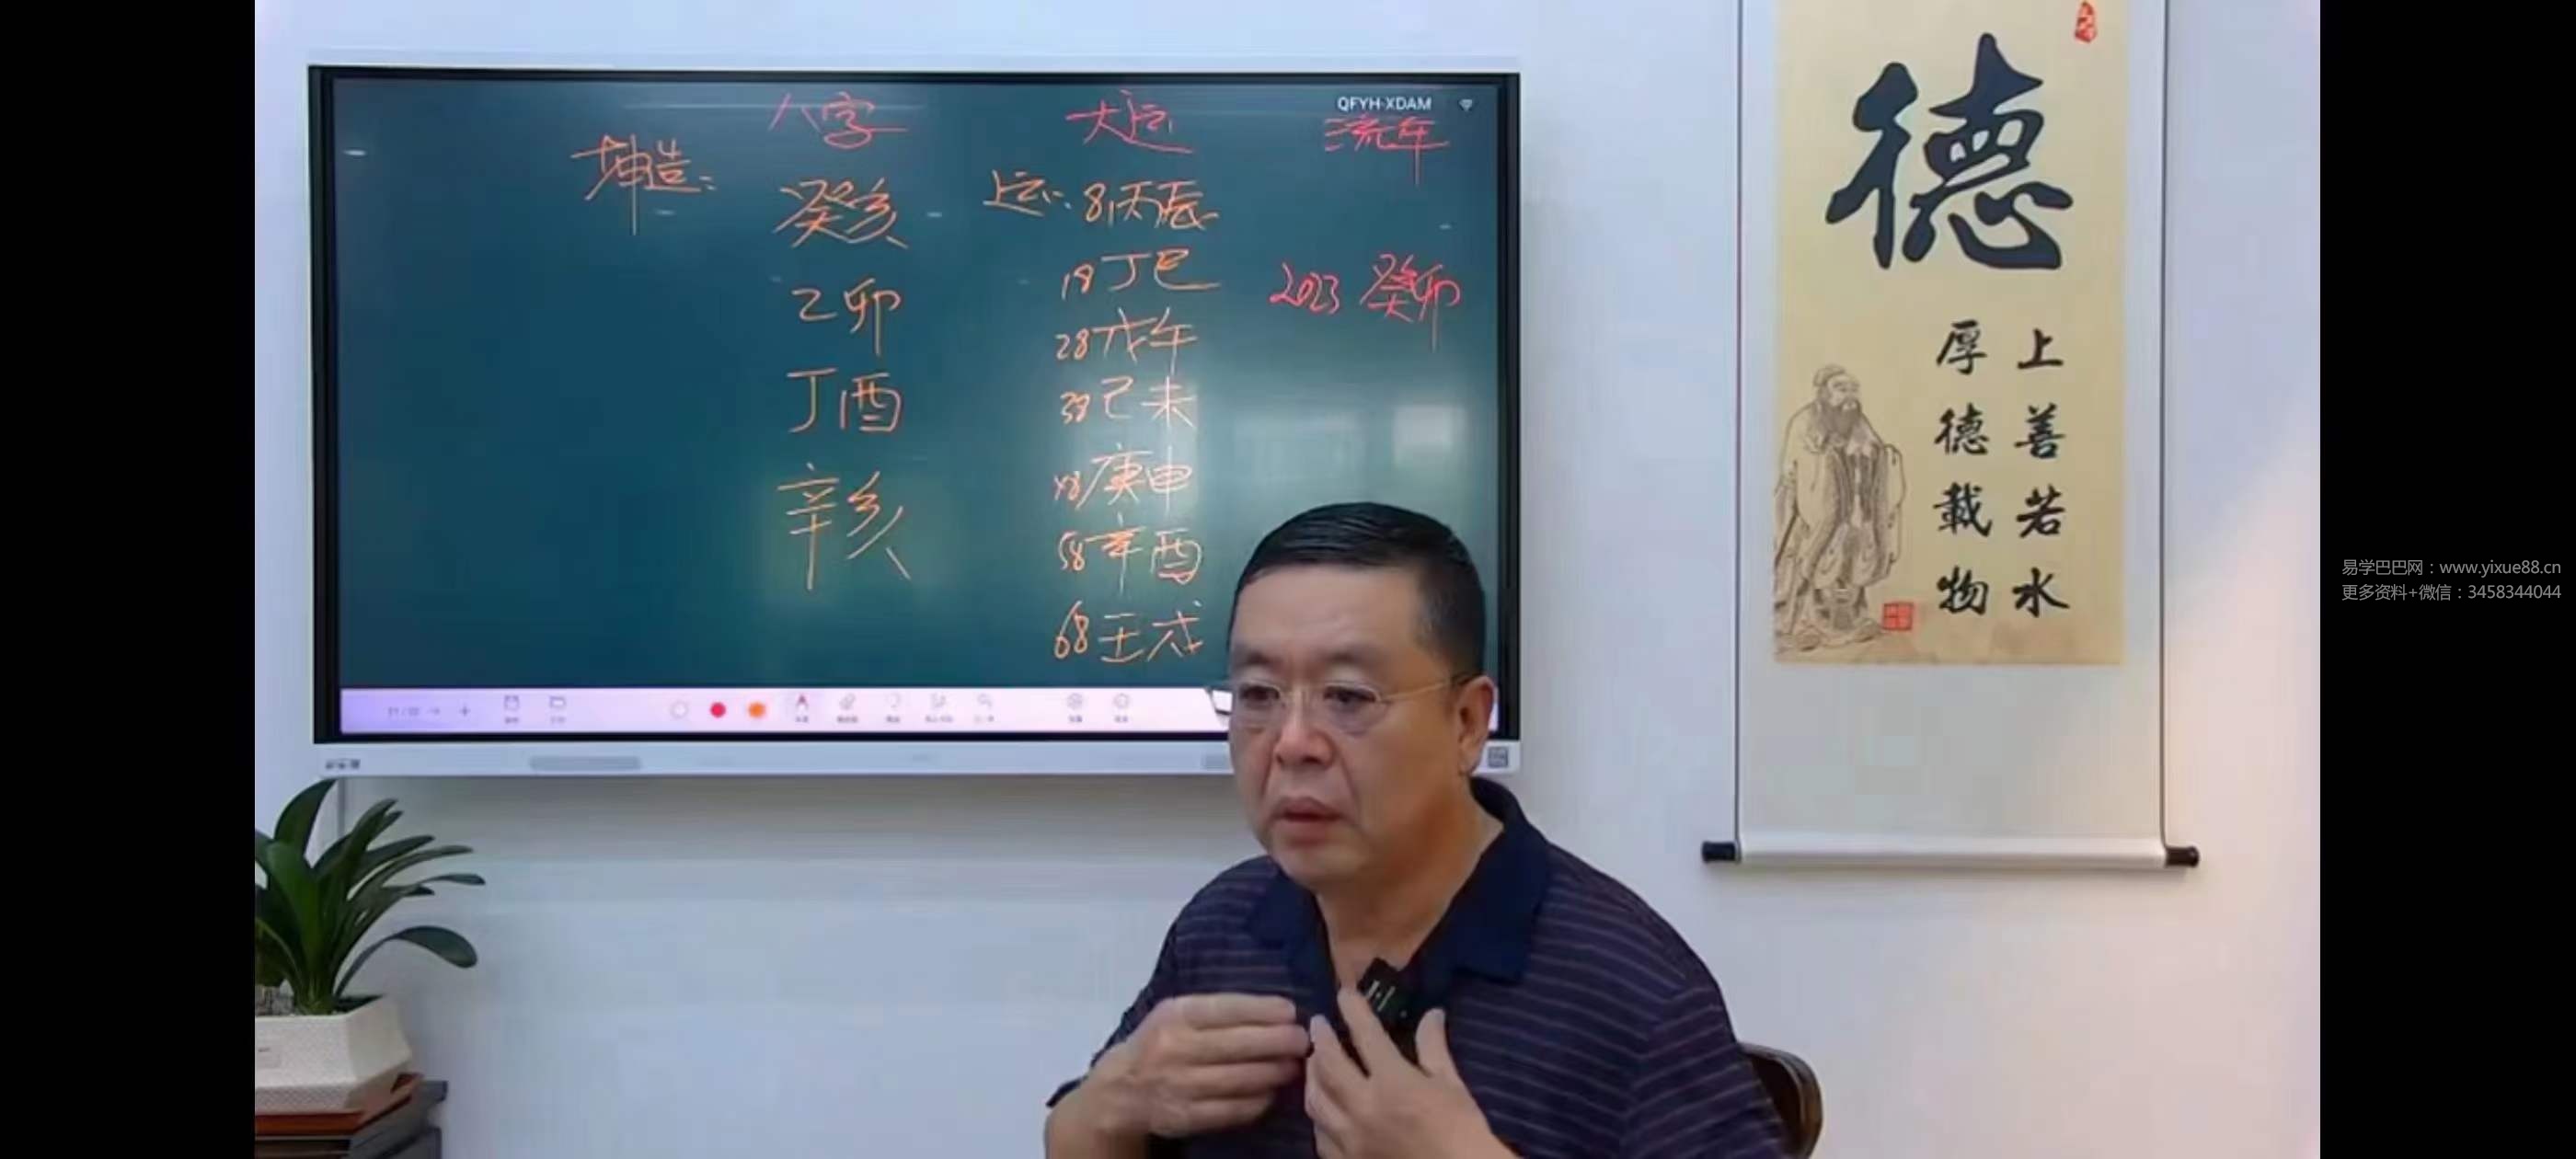 八字
大运
流年
QFYH-XDAM
坤造:
癸亥
乙卯
丁酉
辛亥
上运: 8丙辰
18丁巳
28戊午
38己未
48庚申
58辛酉
68壬戌
2023 癸卯
德
上善若水
厚德載物
易学巴巴网：www.yixue88.cn
更多资料+微信：3458344044